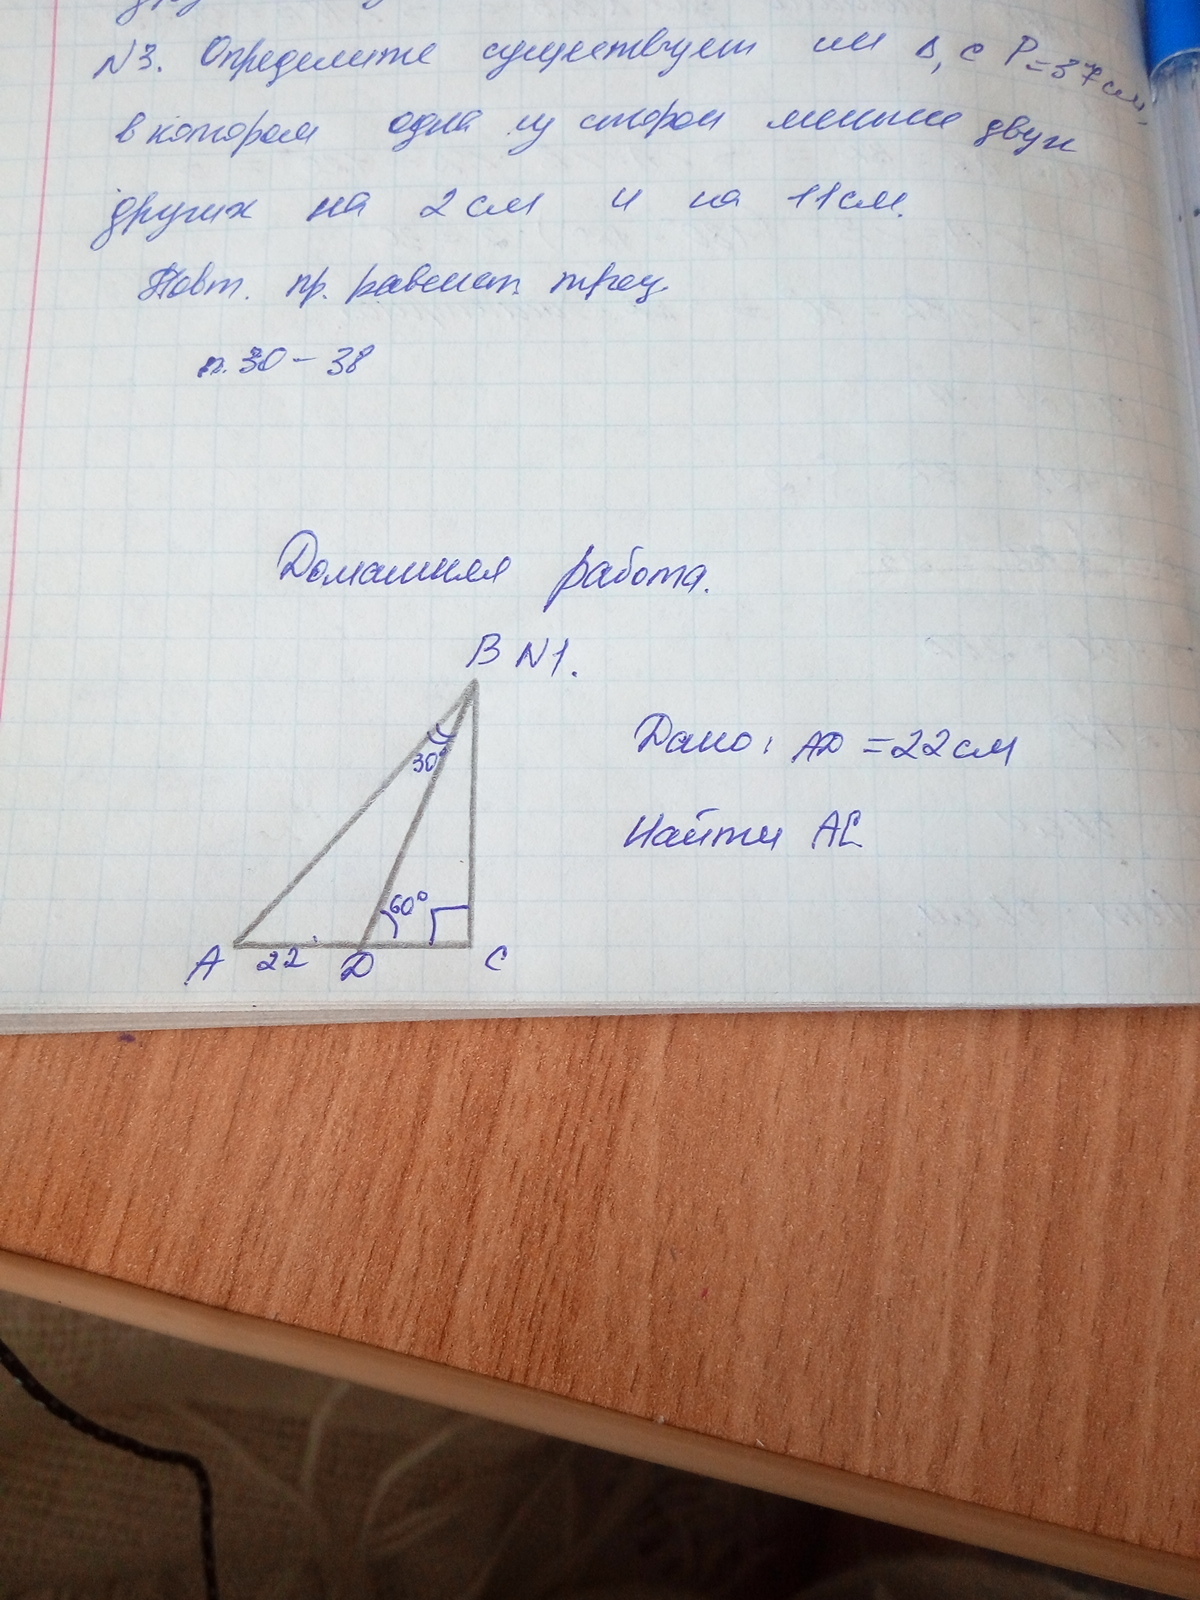 N3. Определите существует ли Δ, с P=37см,
в котором одна из сторон меньше двух
других на 2см и на 11см.
Повт. пр. равенст. треуг.
п. 30 - 38
Домашняя работа.
B N1.
30°
Дано: AD = 22см
Найти AC
60°
A 22 D C